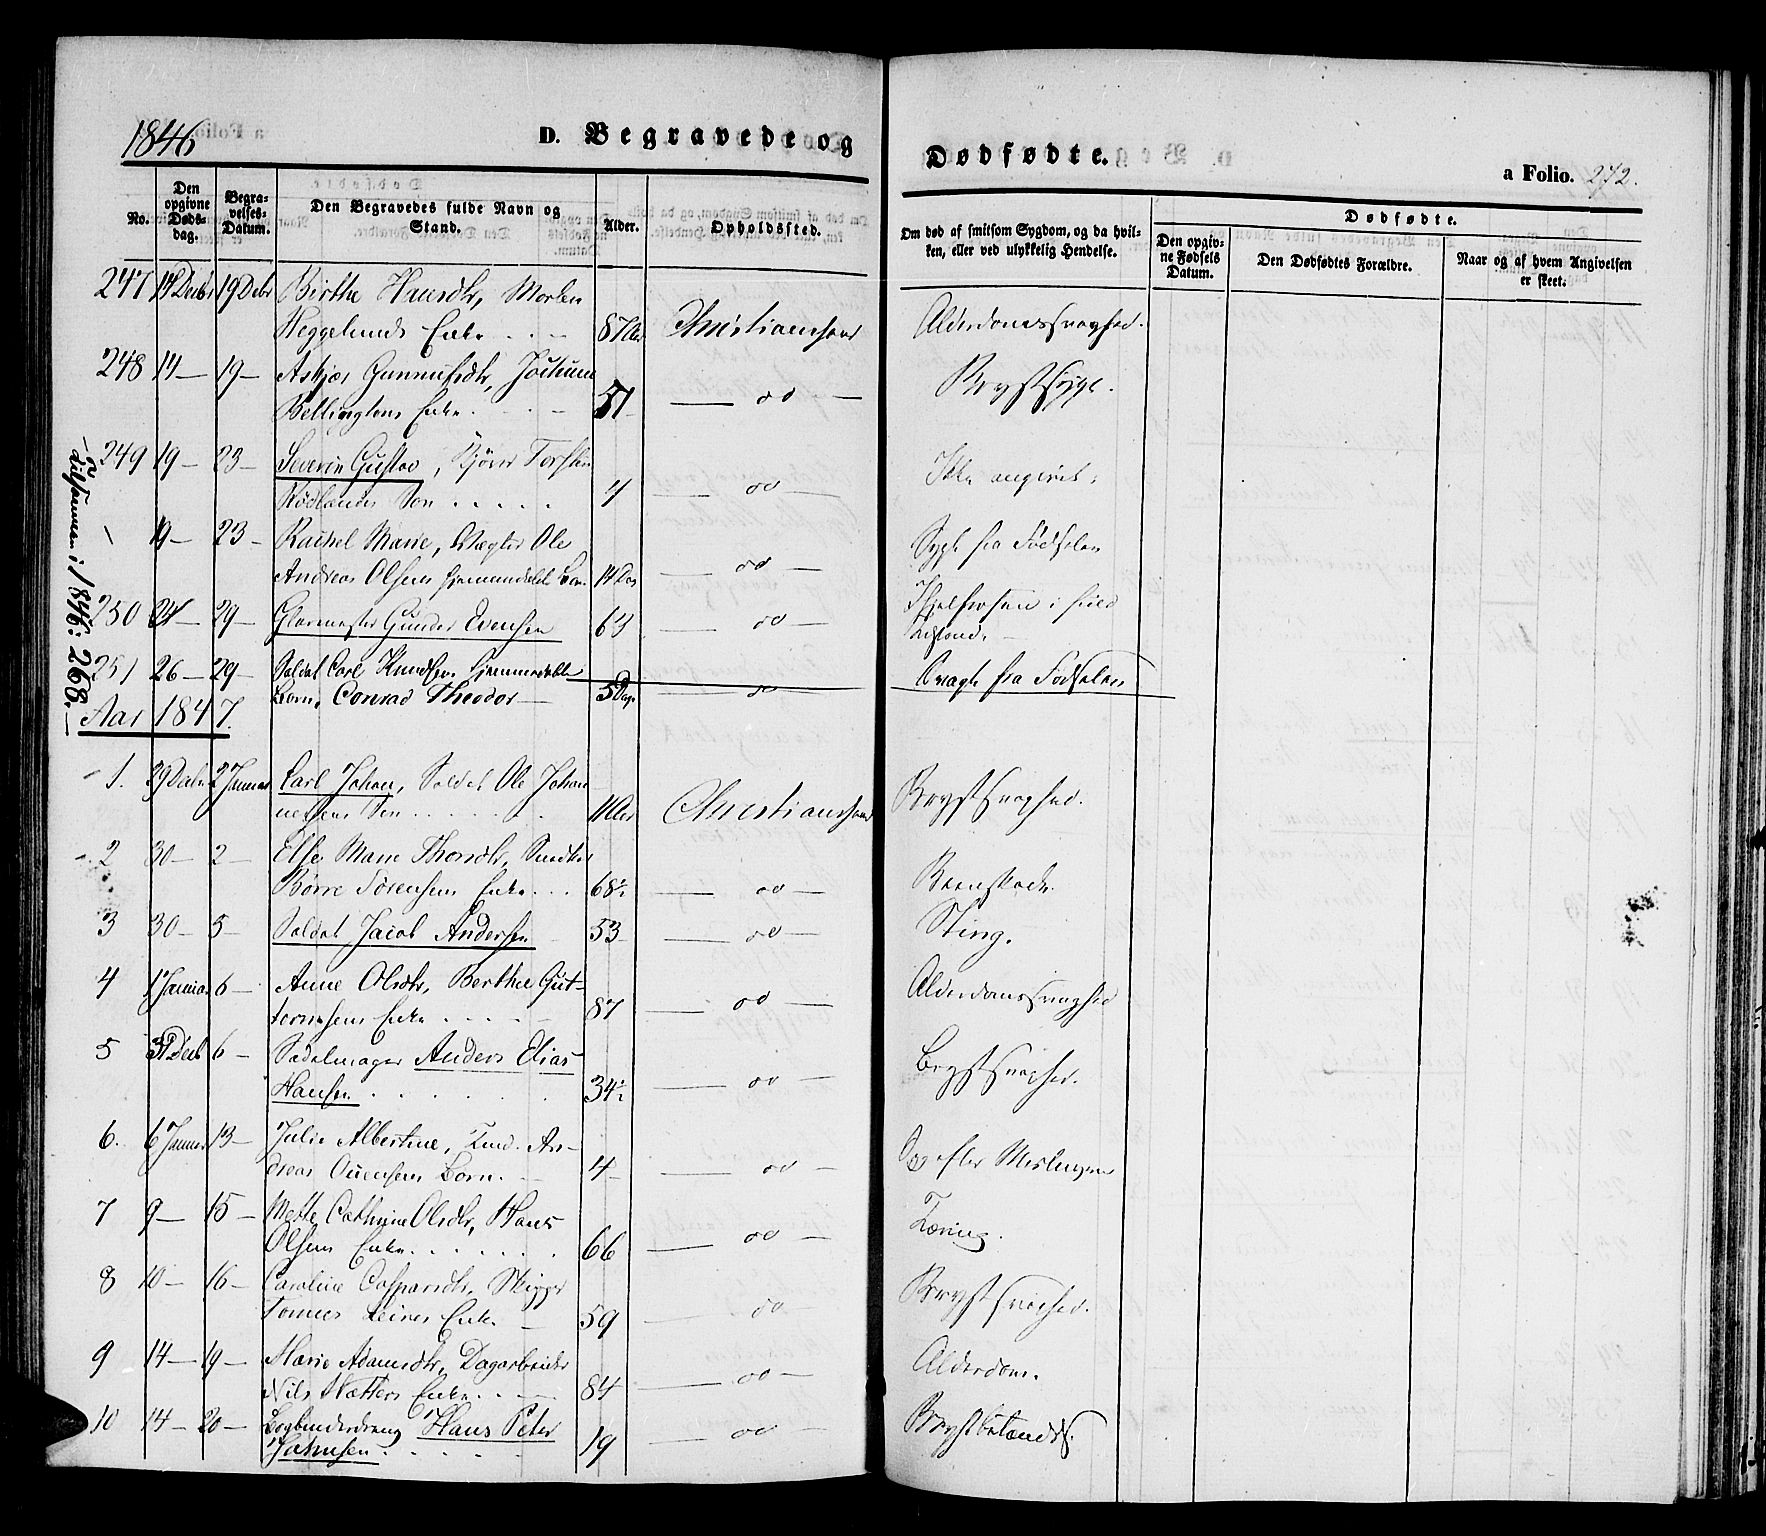 1846
D. Begravede og
Dødfødte.
a Folio. 272.
No.
Den opgivne Døds- dag.
Begra- velses- Datum.
Den Begravedes fulde Navn og Stand.
Alder.
Opholdssted.
Om død af smitsom Sygdom, og da hvil- ken, eller ved ulykkelig Hendelse.
Dødfødte.
Den opgiv- ne Fødsels Datum.
Den Dødfødtes Forældre.
Naar og af hvem Angivelsen er skeet.
247 14 Decbr 19 Decbr Birthe Hansdtr, Morten
Heggelunds Enke 87 Aar Christianssand Alderdomssvaghed.
248 14 — 19 — Askjær Gunnufsdtr, Jochum
Bellingtons Enke 51 — do — Brystsyge.
249 19 — 23 — Severin Gustav, Bjørn Torsten
Rødlands Søn 4 — do — Ikke angivet.
19 — 23 — Rachel Marie, Vægter Ole
Andreas Olsens hjemmedøbt Barn 14 Dag — do — Syg fra Fødselen
250 24 — 29 — Glarmester Gunder Evensen 63 — do — Ihjelfrosen i fuld
Tilstand.
251 26 — 29 — Soldat Carl Knudsens hjemmedøbte
Barn, Conrad Theodor — 5 Dage — do Svagh. fra Fødselen
Tilsammen i 1846: 268.
Aar 1847.
1. 29 Decbr 2 Januar Carl Johan, Soldat Ole Johan
nessens Søn 11 Aar Christianssand Brystsvaghed.
2 30 — 2 — Else Marie Thorsdtr,
Børre Sørensens Enke 68½ — do — Benskade.
3 30 — 5 — Soldat Jacob Andersen 53 — do — Sting.
4 1 Januar 6 — Anne Olsdtr, Berthel Gut-
tormsens Enke 87 — do — Alderdomssvaghed
5 31 Decb 6 — Sadelmager Anders Elias
Hansen 34½ — do — Brystsvaghed.
6. 6 Januar 13 — Julie Albertine, Tind. An-
dreas Evensens Barn. 4 — do — efter Meslinger
7 9 — 15 — Mette Cathrine Olsdtr, Hans
Olsens Enke 66 — do — Tæring.
8 10 — 16 — Caroline Caspersdtr, Skipper
Tønnes Reiers Enke 59 — do Brystsvaghed.
9 14 — 19 — Marie Adamsdtr, Dagarbeider
Nils Hætters Enke 84 — do — Alderdom.
10 14 — 20 — Bogbinderdreng Hans Peter
Jahnsen 19 — do — Brystbetændels.